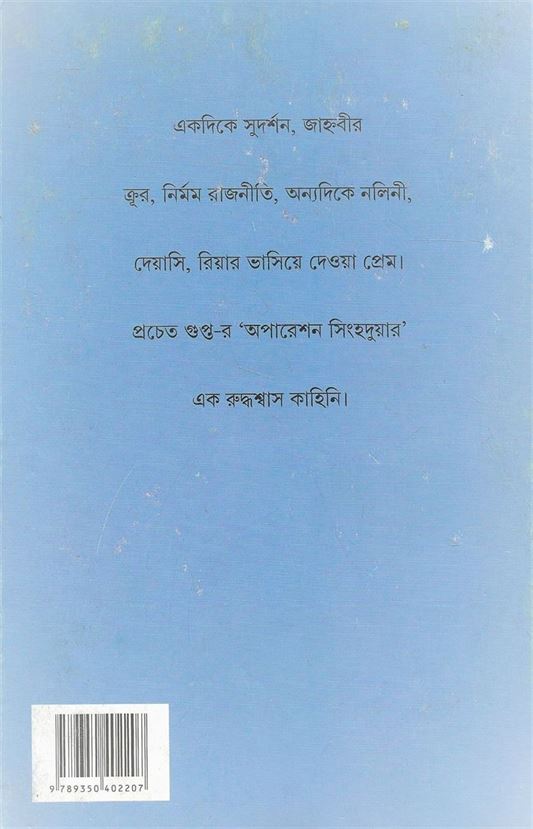 একদিকে সুদর্শন, জাহ্নবীর
ক্রূর, নির্মম রাজনীতি, অন্যদিকে নলিনী,
দেয়াসি, রিয়ার ভাসিয়ে দেওয়া প্রেম।
প্রচেত গুপ্ত-র ‘অপারেশন সিংহদুয়ার’
এক রুদ্ধশ্বাস কাহিনি।
9 789350 402207